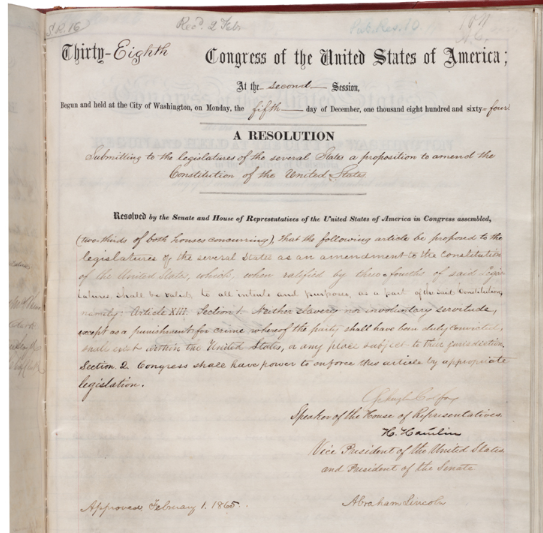 Rec'd 2 Feb
Thirty-Eighth Congress of the United States of America;
At the Second Session,
Begun and held at the City of Washington, on Monday, the fifth day of December, one thousand eight hundred and sixty-four
A RESOLUTION
Submitting to the legislatures of the several States a proposition to amend the
Constitution of the United States
Resolved by the Senate and House of Representatives of the United States of America in Congress assembled,
(two-thirds of both houses concurring), that the following article be proposed to the
legislatures of the several States as an amendment to the Constitution
of the United States, which, when ratified by three-fourths of said legis-
latures shall be valid, to all intents and purposes, as a part of the said Constitution,
namely: Article XIII. Section 1. Neither slavery nor involuntary servitude,
except as a punishment for crime whereof the party shall have been duly convicted,
shall exist within the United States, or any place subject to their jurisdiction.
Section 2. Congress shall have power to enforce this article by appropriate
legislation.
Schuyler Colfax
Speaker of the House of Representatives
H. Hamlin
Vice President of the United States
and President of the Senate
Approved, February 1. 1865.
Abraham Lincoln